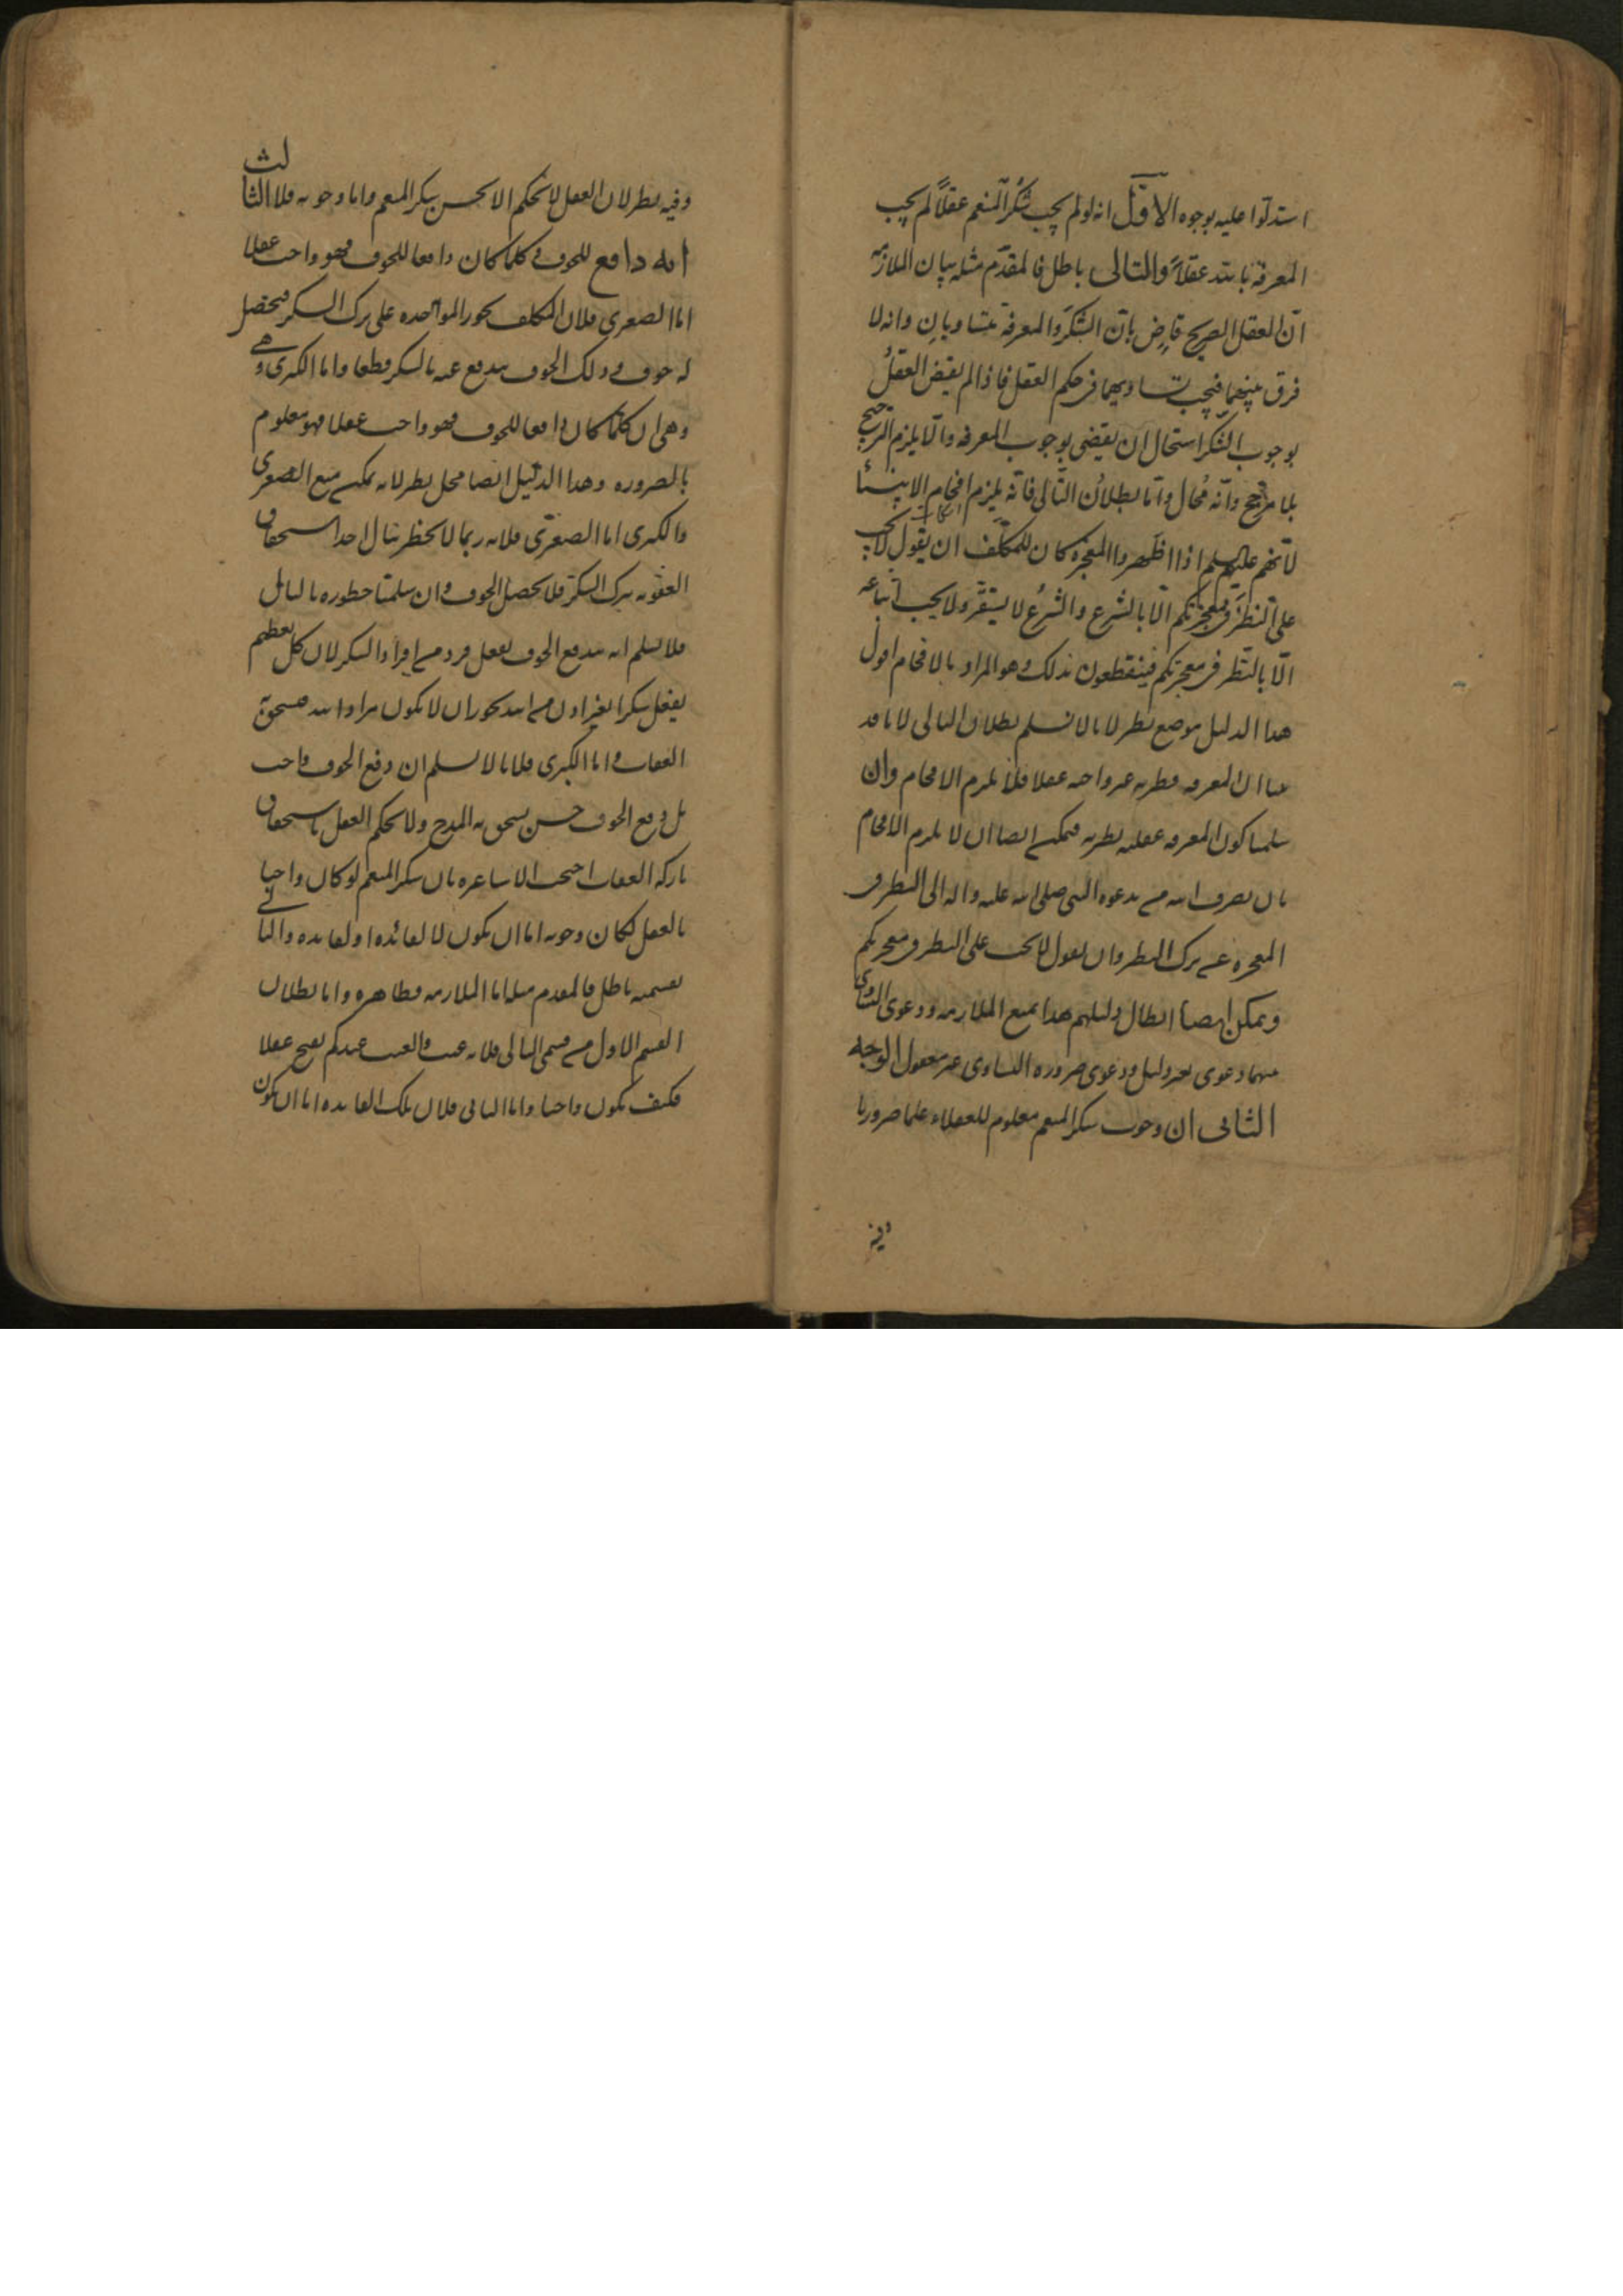 استدلّوا عليه بوجوه الاوّل انه لو لم يجب شُكرُ المنعم عقلاً لم يجب
المعرفة بالله عقلاً والتالى باطل فالمقدّم مثله بيان الملازمه
انّ العقل الصريح قاضٍ بانّ الشكرَ والمعرفة متساويانِ وانه لا
فرق بينهما فيجب تساويهما فى حكم العقل فاذا لم يقض العقلُ
بوجوب الشكر استحال ان يقضى بوجوب المعرفه والّا يلزم الترجيح
بلا مرجّح وانّه مُحال وامّا بطلانُ التّالى فانّه يلزم افحام الانبياء
لانهم عليهم السلم اذا اظهروا المعجزه كان للمكلّف ان يقول لا يجب
علىّ النظرَ فى معجزتكم الّا بالشرع والشرعُ لا يستقرّ ولا يجب اتباعه
الّا بالنّظر فى معجزتكم فينقطعون بذلك وهو المراد بالافحام اقول
هدا الدليل موضع نظر لانا لا نسلم بطلان التالى لانا قد
بينا ان المعرفه فطريه غير واجبه عقلا فلا يلزم الافحام وان
سلمنا كون المعرفه عقليه نظريه فيمكن ايضا ان لا يلزم الافحام
بان يصرف الله من يدعوه النبى صلى الله عليه واله الى النظر فى
المعجزه عن ترك النظر وان يقول لا يجب على النظر فى معجزتكم
ويمكن ايضا ابطال دليلهم هدا بمنع الملازمه ودعوى التساوى
بينهما دعوى بغير دليل ودعوى ضروره التساوى غير معقول الوجه
الثانى ان وجوب شكر المنعم معلوم للعقلاء علما ضروريا
وفيه
وفيه نظر لان العقل لا يحكم الا بحسن شكر المنعم واما وجوبه فلا الثالث
انه دافع للخوف وكلما كان دافعا للخوف فهو واجب عقلا
اما الصغرى فلان المكلف يجوز المواخده على ترك الشكر فيحصل
له خوف ودلك الخوف يندفع عنه بالشكر قطعا واما الكبرى وهى
وهى ان كلّما كان دافعا للخوف فهو واجب عقلا فهو معلوم
بالضروره وهدا الدليل ايضا محل نظر لانه يمكن منع الصغرى
والكبرى اما الصغرى فلانه ربما لا يخطر ببال احد استحقاق
العقوبه بترك الشكر فلا يحصل الخوف وان سلمنا خطوره بالبال
فلا نسلم انه يندفع الخوف بفعل فرد من افراد الشكر لان كل تعظيم
يفعل شكرا بغير ادن من الله يجوز ان لا يكون مراد الله فيستحق به
العقاب واما الكبرى فلانا لا نسلم ان دفع الخوف واجب
بل دفع الخوف حسن يستحق به المدح ولا يحكم العقل باستحقاق
تاركه العقاب احتجت الاشاعره بان شكر المنعم لو كان واجبا
بالعقل لكان وجوبه اما ان يكون لا لفائده او لفايده والتالى
بقسميه باطل فالمقدم مثله اما الملازمه فظاهره واما بطلان
القسم الاول من قسمى التالى فلانه عبث والعبث عندكم قبيح عقلا
فكيف يكون واجبا واما الثانى فلان تلك الفايده اما ان يكون